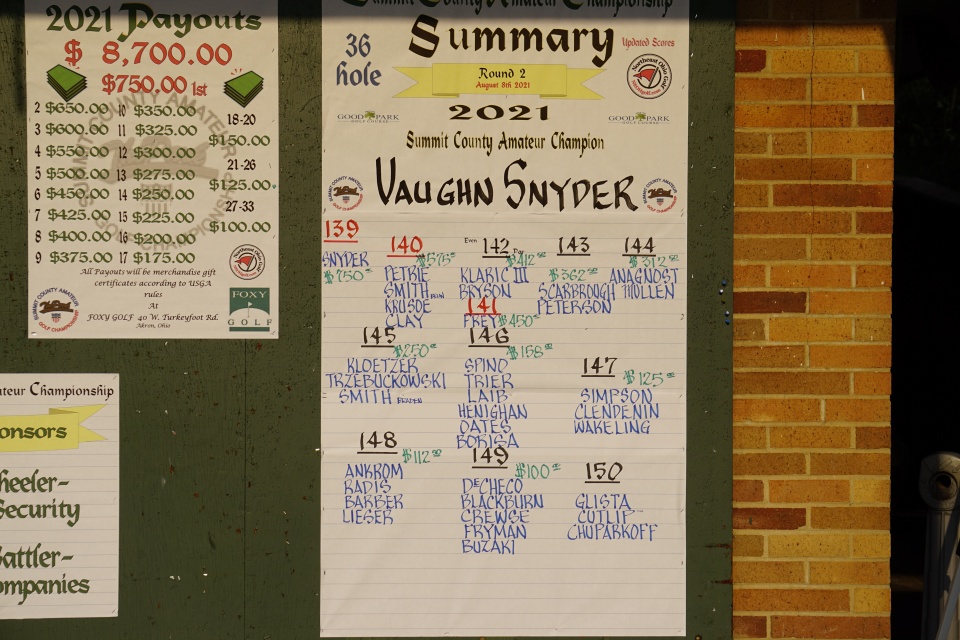 2021 Payouts
$ 8,700.00
$750.00 1st
2 $650.00 10 $350.00
3 $600.00 11 $325.00
4 $550.00 12 $300.00
5 $500.00 13 $275.00
6 $450.00 14 $250.00
7 $425.00 15 $225.00
8 $400.00 16 $200.00
9 $375.00 17 $175.00
18-20
$150.00
21-26
$125.00
27-33
$100.00
All Payouts will be merchandise gift
certificates according to USGA
rules
At
FOXY GOLF 40 W. Turkeyfoot Rd.
Akron, Ohio
FOXY
GOLF
ateur Championship
onsors
heeler-
Security
attler-
ompanies
Summit County Amateur Championship
Summary
36
hole
Updated Scores
Northeast Ohio Golf
Round 2
August 8th 2021
2021
GOOD PARK
GOLF COURSE
GOOD PARK
GOLF COURSE
Summit County Amateur Champion
VAUGHN SNYDER
139
SNYDER
$750
140
$575
PETRIE
SMITH
KRUSE
CLAY
Even 142 Par
$412
KLARIC III
BRYSON
141
FREY $450
143
$362
SCARBROUGH
PETERSON
144
$312
ANAGNOST
MULLEN
145
$250
KLOETZER
TRZEBUCKOWSKI
SMITH
146
$158
SPINO
TRIER
LAIB
HENIGHAN
OATES
BORISA
147
$125
SIMPSON
CLENDENIN
WAKELING
148
$112
ANKROM
RADIS
BARBER
LIESER
149
$100
DeCHECO
BLACKBURN
CREWSE
FRYMAN
BUZAKI
150
GLISTA
CUTLIP
CHUPARKOFF